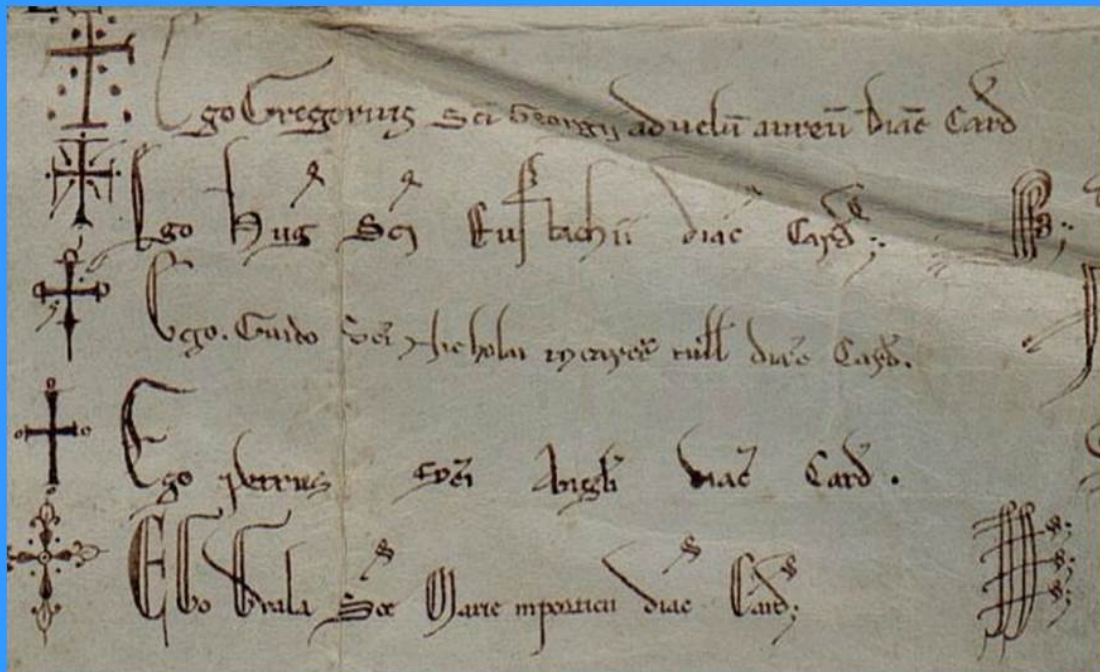 Ego Gregorius Sci Georgii ad uelū aureū diac̄ Card
Ego Hug Sci Eustachii diac Card
Ego. Guido Sci Nicholai in carcē tull diac̄ Card.
Ego petrus Sci Angli diac̄ Card.
EGo Guala Sce Marie inporticu diac Card;